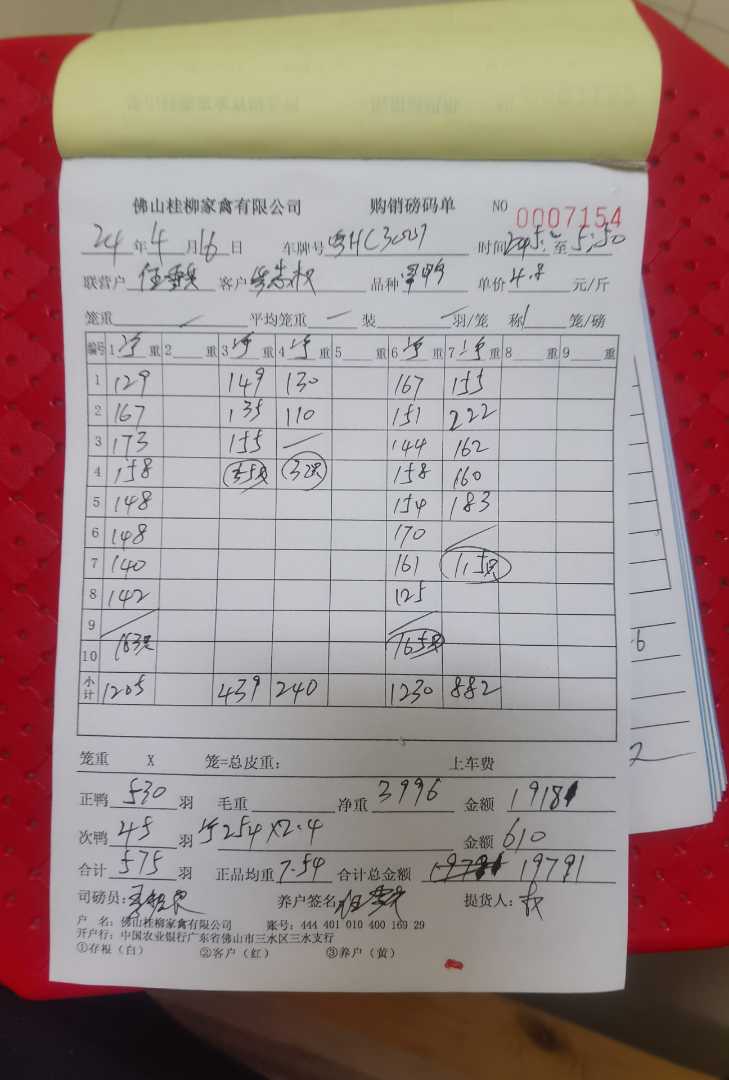 佛山桂柳家禽有限公司 购销磅码单 NO 0007154
24年4月16日 车牌号 粤HC3 时间 至5:50
联营户 客户 品种 单价4.8元/斤
笼重 平均笼重 装 羽/笼 称 笼/磅
编号 1 净重 2 重 3 净重 4 净重 5 重 6 净重 7 净重 8 重 9 重
1 129 149 130 167 155
2 167 135 110 151 222
3 173 155 144 162
4 158 55只 32只 158 160
5 148 154 183
6 148 170
7 140 161 115只
8 142 125
9
10 163只 165只
小计 1205 439 240 1230 882
笼重 X 笼=总皮重: 上车费
正鸭 530 羽 毛重 净重 3996 金额 19181
次鸭 45 羽 净254×2.4 金额 610
合计 575 羽 正品均重 7.54 合计总金额 19791
司磅员: 养户签名 提货人:
户 名:佛山桂柳家禽有限公司 账号:444 401 010 400 169 29
开户行:中国农业银行广东省佛山市三水区三水支行
①存根(白) ②客户(红) ③养户(黄)